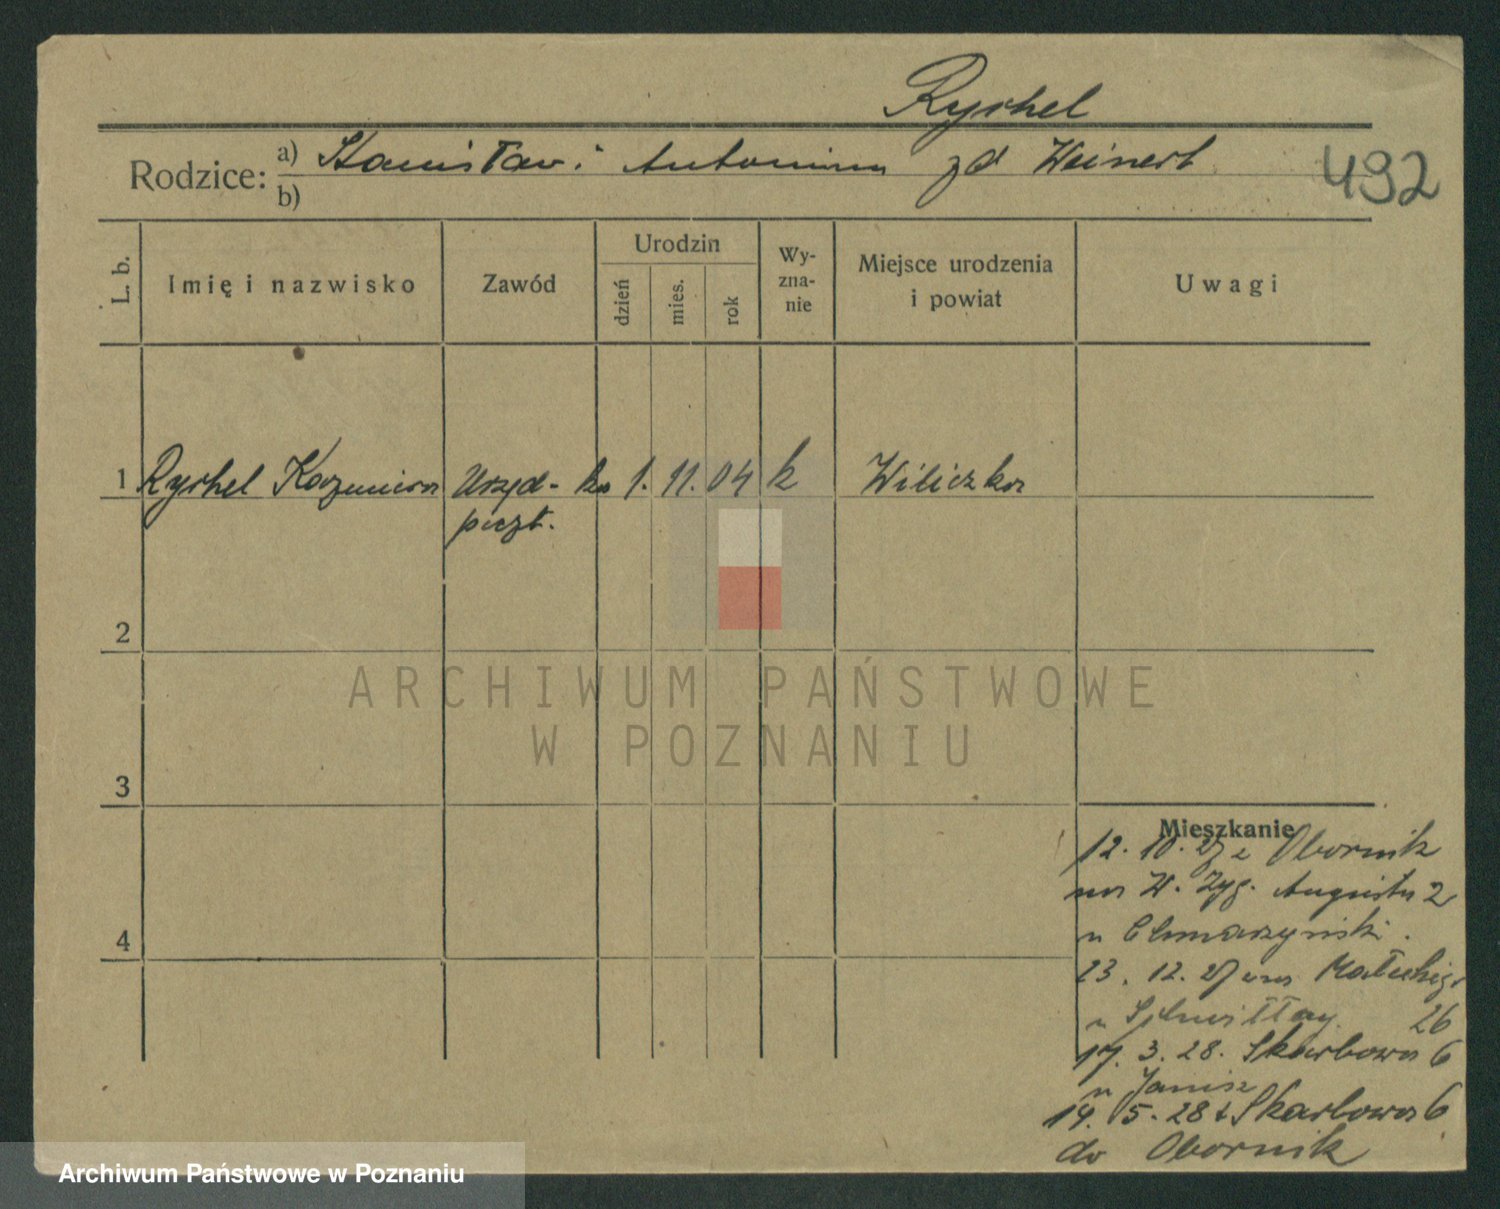 Ryskel
Rodzice: a) Stanisław i Antonina zd Weinert
b)
492
L. b.
Imię i nazwisko
Zawód
Urodzin
dzień
mies.
rok
Wy-
zna-
nie
Miejsce urodzenia
i powiat
Uwagi
1 Ryskel Kazimiera Urzęd-ka 1. 11. 04 k Wiliczka
poczt.
2
3
4
Mieszkanie
12. 10. 27 z Obornik
na W. Zyg. Augusta 2
u
23. 12. 27 na
u 26
17. 3. 28. Skarbowa 6
u Janisz
14. 5. 28 z Skarbowa 6
do Obornik
ARCHIWUM PAŃSTWOWE
W POZNANIU
Archiwum Państwowe w Poznaniu